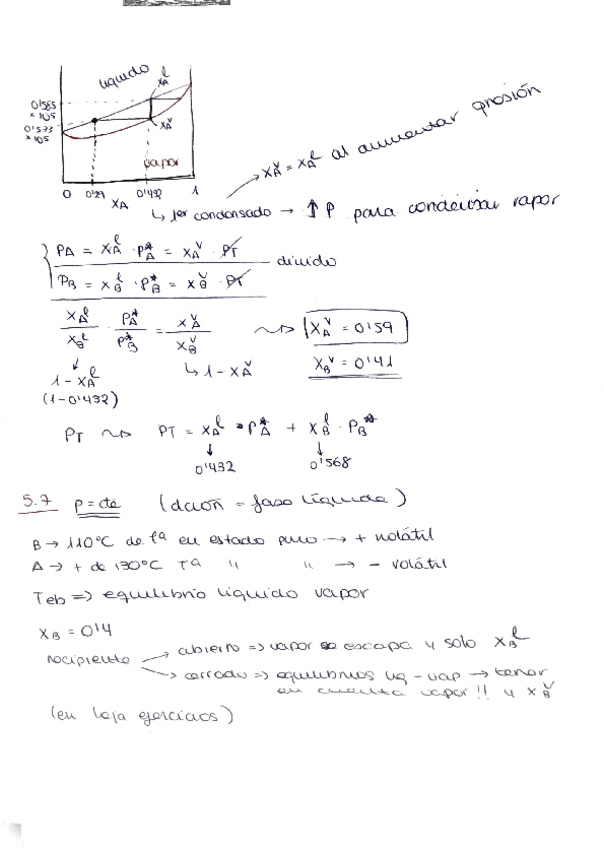 líquido
x_A^l
0'585
x 10^5
0'533
x 10^5
x_A^v
vapor
0 0'29 0'432 1
x_A
→ x_A^v = x_A^l al aumentar presión
↳ 1er condensado → ↑ P para condensar vapor
P_A = x_A^l · P_A^* = x_A^v · P_T
P_B = x_B^l · P_B^* = x_B^v · P_T
divido
x_A^l / x_B^l · P_A^* / P_B^* = x_A^v / x_B^v ⇝ x_A^v = 0'59
↳ 1 - x_A^v x_B^v = 0'41
1 - x_A^l
(1 - 0'432)
P_T ⇝ P_T = x_A^l · P_A^* + x_B^l · P_B^*
0'432 0'568
5.7 P = cte (dción = fase líquida)
B → 110°C de Tª en estado puro → + volátil
A → + de 130°C Tª " " → - volátil
Teb => equilibrio líquido vapor
x_B = 0'4
recipiente → abierto => vapor se escapa y solo x_B^l
→ cerrado => equilibrios líq - vap → tener
en cuenta vapor!! y x_B^v
(en hoja ejercicios)